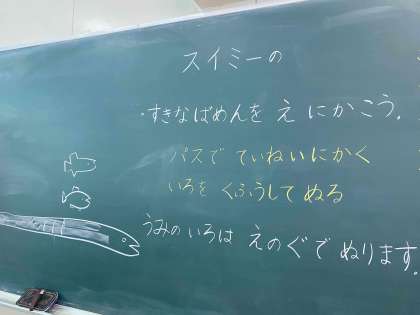 スイミーの
・すきなばめんを え にかこう。
パスで ていねいにかく
いろを くふうして ぬる
うみの いろは えのぐで ぬります。